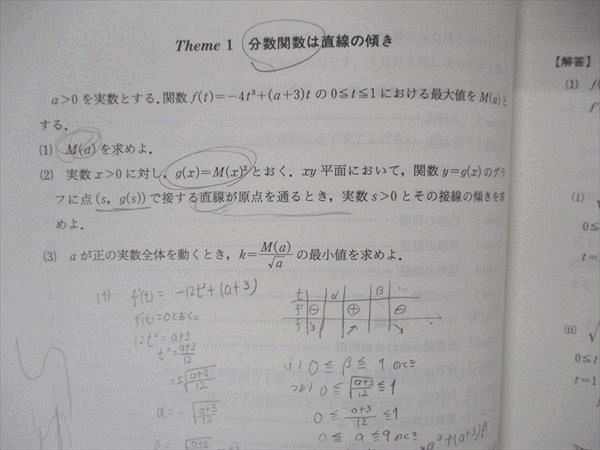 Theme 1 分数関数は直線の傾き
a>0を実数とする.関数f(t)=−4t³+(a+3)tの0≦t≦1における最大値をM(a)と
する.
(1) M(a)を求めよ.
(2) 実数x>0に対し,g(x)=M(x)²とおく.xy平面において,関数y=g(x)のグラ
フに点(s, g(s))で接する直線が原点を通るとき,実数s>0とその接線の傾きを求
めよ.
(3) aが正の実数全体を動くとき,k=M(a)/√a の最小値を求めよ.
(1) f'(t)= −12t²+(a+3)
f'(t)=0とおく。
12t²=a+3
t²=(a+3)/12
=±√((a+3)/12)
α=−√((a+3)/12)
β=√((a+3)/12)
t … α … β …
f' ⊖ ⊕ ⊖
f ↘ ↗ ↘
i) 0≦β≦1のとき
つまり 0≦√((a+3)/12)≦1
0≦(a+3)/12≦1
0≦a≦9のとき
+(a+3)β
【解答】
(1) f(
f'
(i)
0≦
t=
(ii)
0≦t
t=1